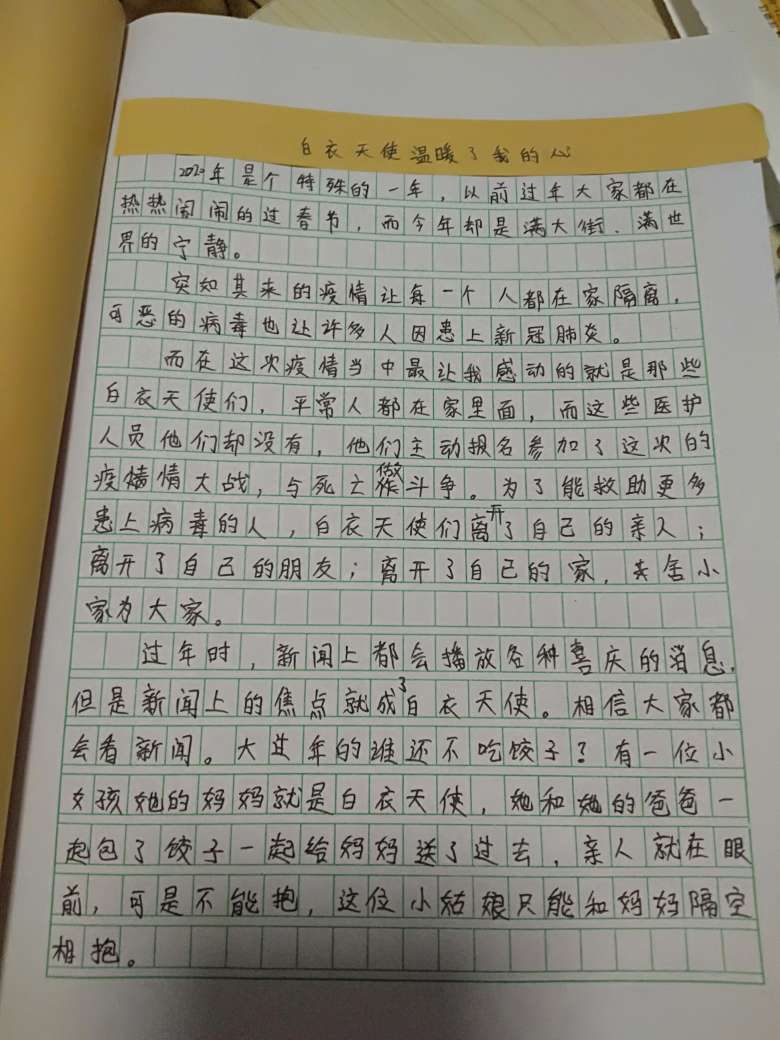 白衣天使温暖了我的心
2020年是个特殊的一年，以前过年大家都在
热热闹闹的过春节，而今年却是满大街、满世
界的宁静。
突如其来的疫情让每一个人都在家隔离，
可恶的病毒也让许多人因患上新冠肺炎。
而在这次疫情当中最让我感动的就是那些
白衣天使们，平常人都在家里面，而这些医护
人员他们却没有，他们主动报名参加了这次的
疫情大战，与死亡做斗争。为了能救助更多
患上病毒的人，白衣天使们离开了自己的亲人；
离开了自己的朋友；离开了自己的家，舍小
家为大家。
过年时，新闻上都会播放各种喜庆的消息，
但是新闻上的焦点就成了白衣天使。相信大家都
会看新闻。大过年的谁还不吃饺子？有一位小
女孩她的妈妈就是白衣天使，她和她的爸爸一
起包了饺子一起给妈妈送了过去，亲人就在眼
前，可是不能抱，这位小姑娘只能和妈妈隔空
相抱。